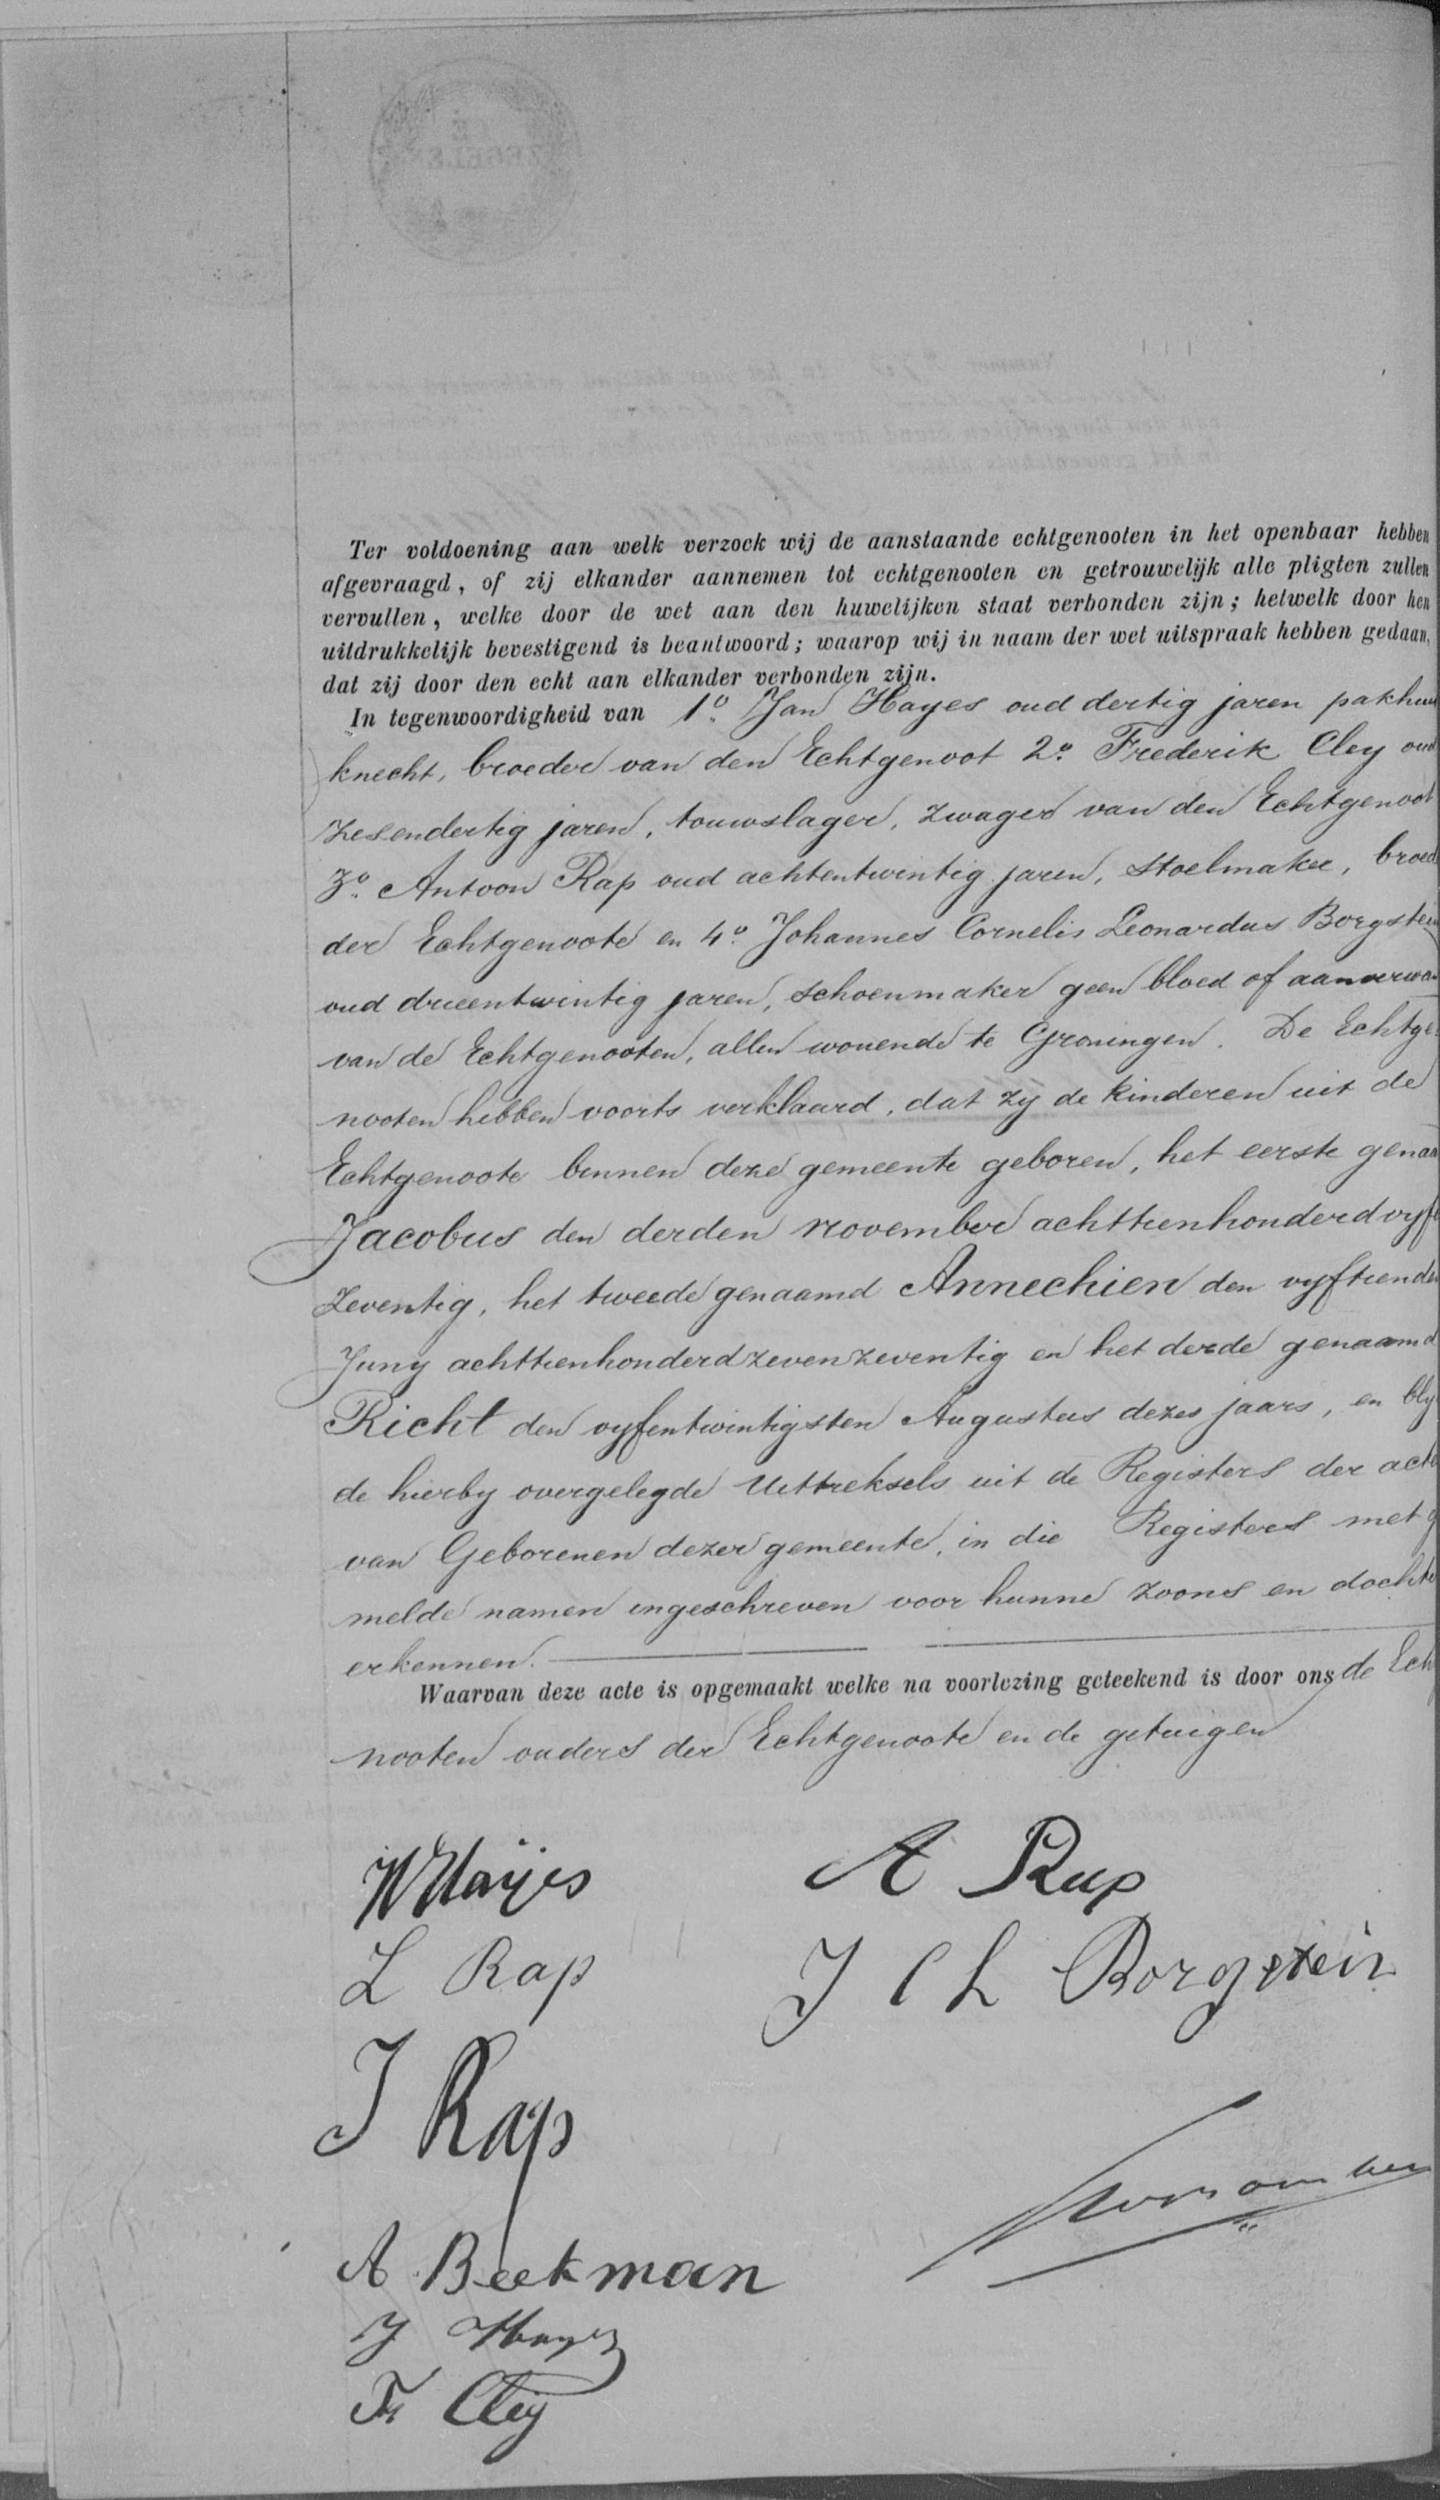 Ter voldoening aan welk verzoek wij de aanstaande echtgenooten in het openbaar hebben
afgevraagd, of zij elkander aannemen tot echtgenooten en getrouwelijk alle pligten zullen
vervullen, welke door de wet aan den huwelijken staat verbonden zijn; hetwelk door hen
uitdrukkelijk bevestigend is beantwoord; waarop wij in naam der wet uitspraak hebben gedaan,
dat zij door den echt aan elkander verbonden zijn.
In tegenwoordigheid van 1o. Jan Hayes oud dertig jaren pakhuis
knecht, broeder van den Echtgenoot 2o. Frederik Cley oud
zesendertig jaren, touwslager, zwager van den Echtgenoot
3o. Antoon Rap oud achtentwintig jaren, stoelmaker, broed
der Echtgenoote en 4o. Johannes Cornelis Leonardus Borgstein
oud drieentwintig jaren, schoenmaker geen bloed of aanverwa
van de Echtgenooten, allen wonende te Groningen. De Echtge
nooten hebben voorts verklaard, dat zy de kinderen uit de
Echtgenoote binnen deze gemeente geboren, het eerste genaa
Jacobus den derden november achttienhonderd vyf
zeventig, het tweede genaamd Annechien den vyftienden
Juny achttienhonderd zevenzeventig en het derde genaamd
Richt den vyfentwintigsten Augustus dezes jaars, en bly
de hierby overgelegde Uittreksels uit de Registers der acte
van Geborenen dezer gemeente, in die Registers met g
melde namen ingeschreven voor hunne zoons en dochte
erkennen.
Waarvan deze acte is opgemaakt welke na voorlezing geteekend is door ons de Ech
nooten ouders der Echtgenoote en de getuigen
W Haijes
A Rap
L Rap
J C L Borgstein
J Rap
A Beekman
J Hayes
Fr Cleij